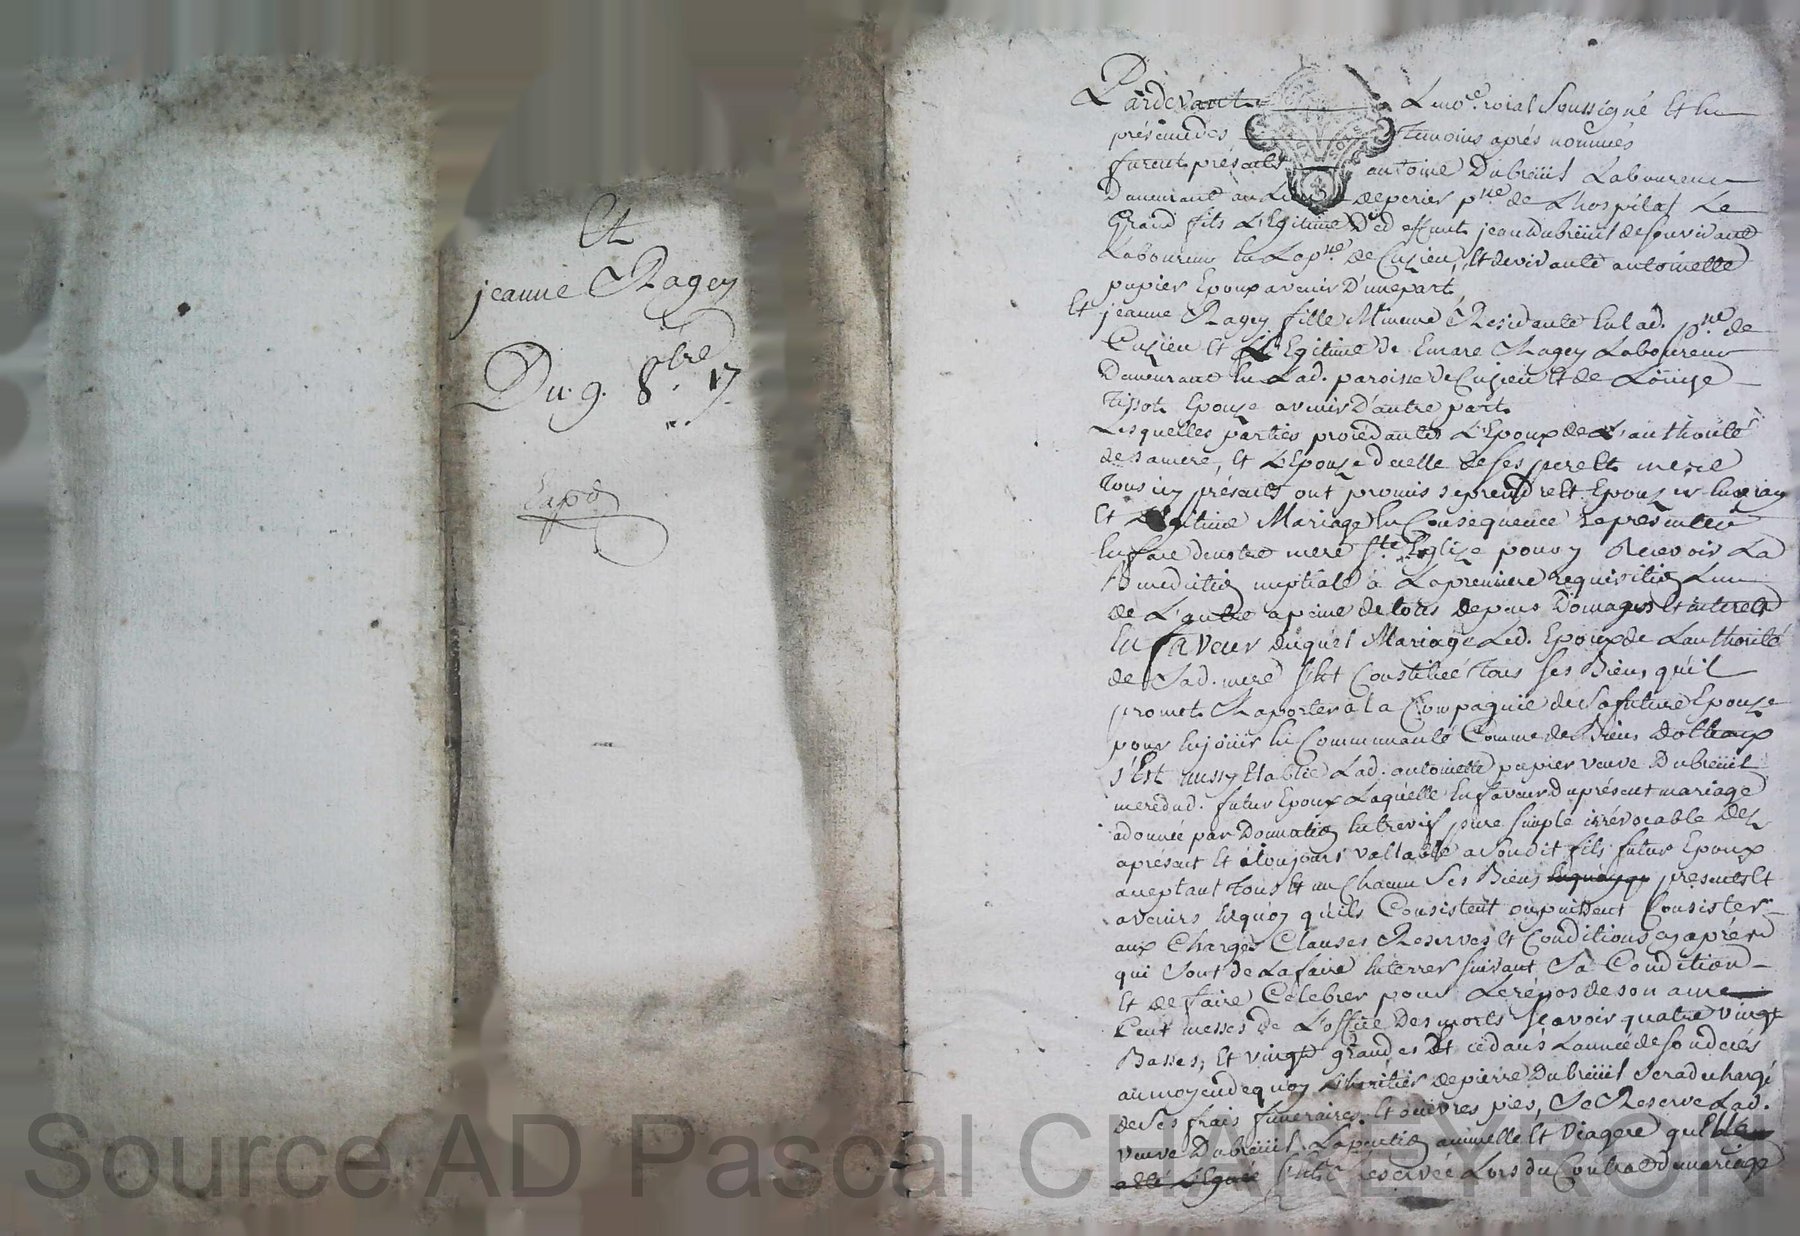 Et
jeanne Ragey
Du. 9. 8bre 17
Expd
Pardevant Le noe. roial Soussigné Et En
présence des Temoins aprés nommés
furent présents antoine Dubreüil Laboureur
Demeurant au Lieu de perier psse de L'hospital Le
Grand fils L'Egitime D'ed effunt jean dubreüil de Son vivant
Laboureur En Lapsse de Cuzieu, Et de vivante antoinette
papier Epoux avenir D'une part
Et jeanne Ragey fille Mineure Residante En lad. psse de
Cuzieu Et L'Egitime de Ragey Laboureur
Demeurant En Lad. paroisse de Cuzieu Et de Loüize
Tissot Epouze avenir D'autre part
Lesquelles parties procédantes L'Epoux de L'authorité
de Sa mere, Et L'Epouze d'icelle de Ses pere Et mere
Tous icy présents ont promis se prendre Et Epouzer En vray
Et Légitime Mariage En Conséquence Se présenter
En face de notre mere Ste Eglize pour y Recevoir La
Benediction nuptiale a La premiere requisition L'un
de L'autre a peine de tous depens Domages Et interets
En faveur duquel Mariage Led. Epoux de L'authorité
de Sad. mere S'Est Constitué Tous Ses Biens qu'il
promet Raporter a la Compagnie de Sa future Epouze
pour En joüir En Communauté Comme de Biens dotteaux
s'Est aussy Etablie Lad. antoinette papier veuve Dubreüil
mere dud. futur Epoux Laquelle En faveur du présent mariage
a donné par Donnation Entrevif pure simple irrévocable Dez
aprésent Et a toujours vallable a Son dit fils futur Epoux
aceptant Tous Et un Chacun Ses Biens présents Et
avenirs En quoy qu'ils Consistent ou puissent Consister
aux Charges Clauses Reserves Et Conditions cy aprés
qui Sont de La faire Enterrer Suivant Sa Condition
Et de faire Célébrer pour Le repos de son ame
Cent messes de L'office Des morts Sçavoir quatre vingt
Basses, Et vingt grandes Et ce dans L'année de Son decés
au moyen de quoy L'heritier de pierre Dubreüil Sera déchargé
de Ses frais funeraires Et oeuvres pies, Se Reserve Lad.
veuve Dubreüil La pention annuelle Et Viagere qu'Elle
S'Est réservée Lors du Contrat de mariage
Source AD Pascal CHAREYRON